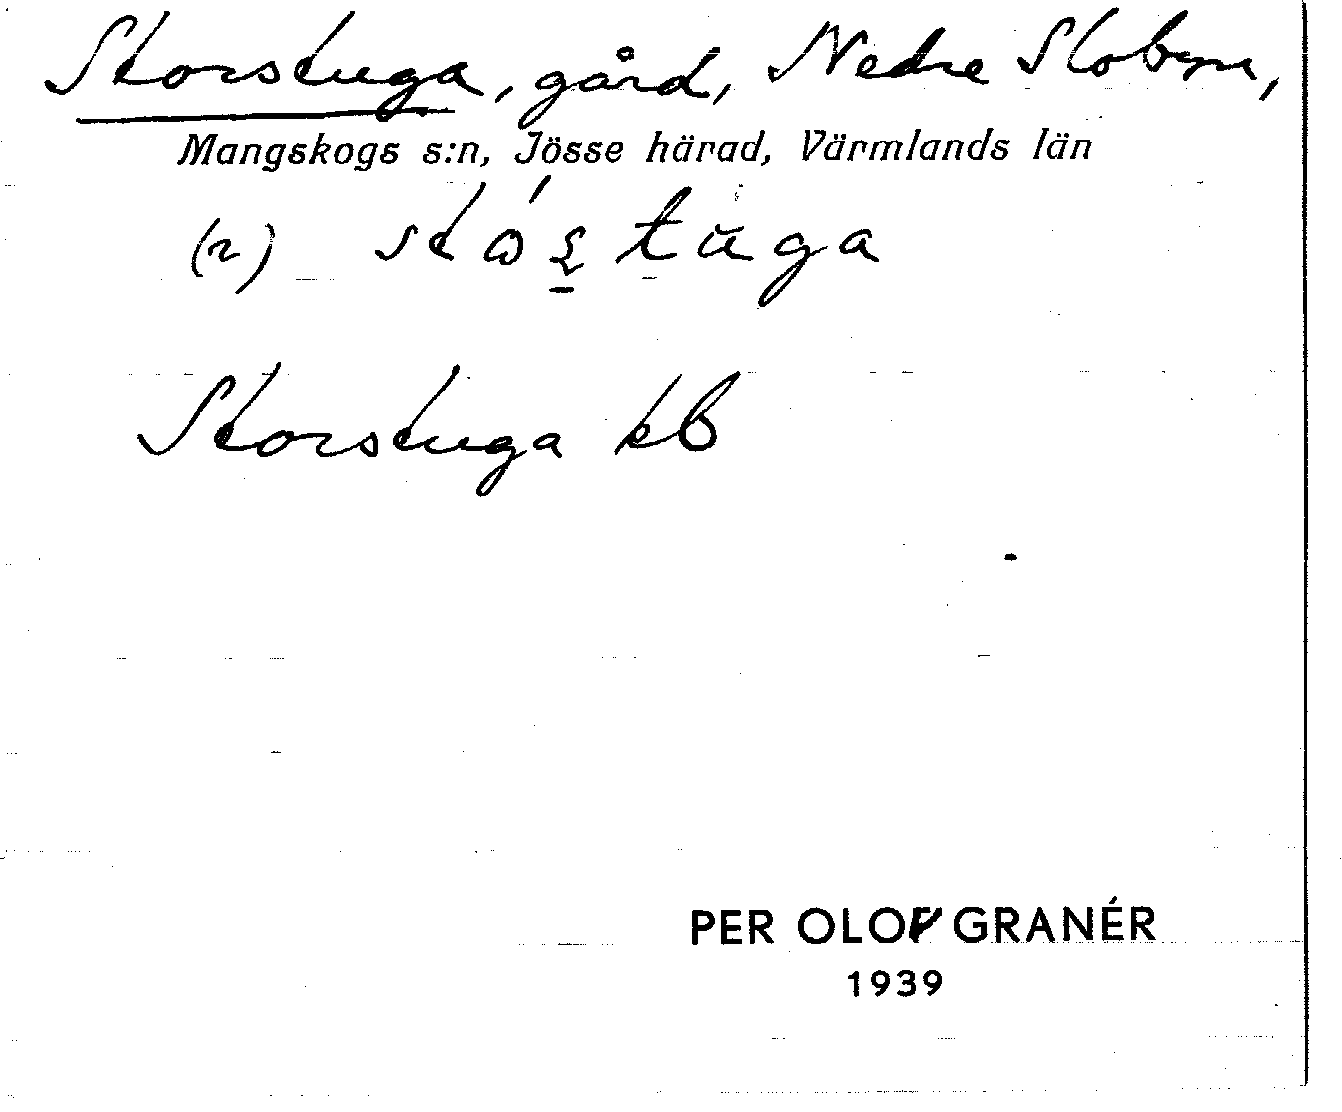 Storstuga, gård, Nedre Slobyn,
Mangskogs s:n, Jösse härad, Värmlands län
(2)
Storstuga kB
PER OLOF GRANÉR
1939